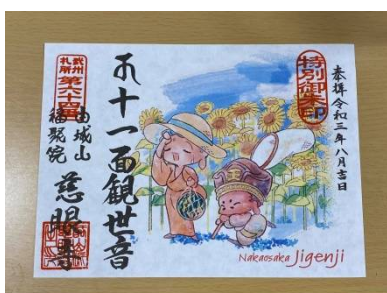 奉拝令和三年八月吉日
特別御朱印
十一面観世音
武州
札所
城山
福聚院
慈眼寺
Nakaosaka Jigenji